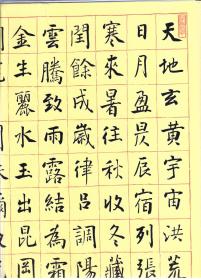 天地玄黃宇宙洪荒
日月盈昃辰宿列張
寒來暑往秋收冬藏
閏餘成歲律呂調陽
雲騰致雨露結為霜
金生麗水玉出昆岡